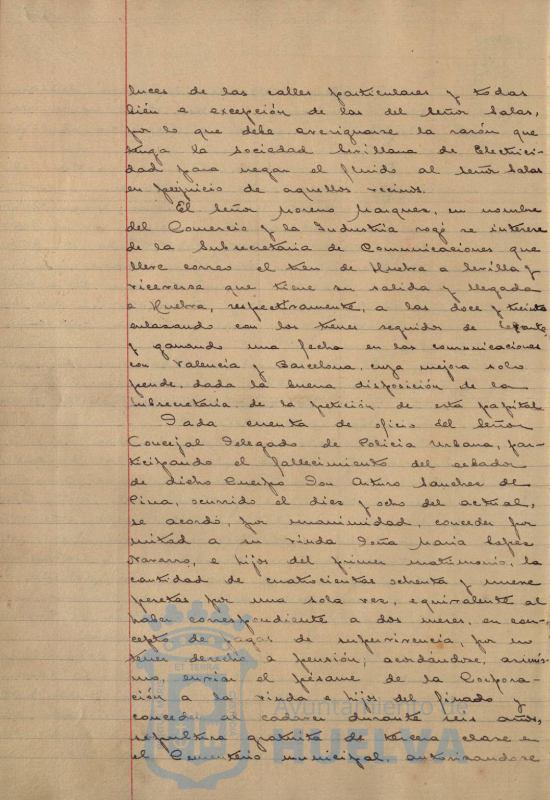 luces de las calles particulares y todas
bién a excepción de las del Señor Salas,
por lo que debe averiguarse la razón que
tenga la Sociedad Sevillana de Electrici-
dad para negar el fluido al Señor Salas
en perjuicio de aquellos vecinos.
El Señor Moreno Marquez, en nombre
del Comercio y la Industria rogó se interese
de la Subsecretaria de Comunicaciones que
lleve correo el tren de Huelva a Sevilla y
viceversa que tiene su salida y llegada
a Huelva, respectivamente, a las doce y treinta
enlasando con los trenes seguidor de Levante
y ganando una fecha en las comunicaciones
con Valencia y Barcelona, cuya mejora solo
pende, dada la buena disposición de la
Subsecretaria, de la petición de esta capital.
Dada cuenta de oficio del Señor
Concejal Delegado de Policia Urbana, par-
ticipando el fallecimiento del cabo
de dicho Cuerpo Don Arturo Sanchez de
ocurrido el dies y ocho del actual,
se acordó, por unanimidad, conceder por
mitad a su viuda Doña Maria Lopez
Navarro, e hijos del primer matrimonio, la
cantidad de cuatrocientas ochenta y nueve
pesetas por una sola vez, equivalente al
haber correspondiente a dos meses, en con-
cepto de pagas de supervivencia, por no
tener derecho a pensión; acordándose, asimis-
mo, enviar el pésame de la Corpora-
ción a la viuda e hijos del finado y
conceder al cadáver durante seis años,
sepultura gratuita de tercera clase en
el Cementerio municipal, autorizandose
ET TERRÆ
Ayuntamiento de
HUELVA